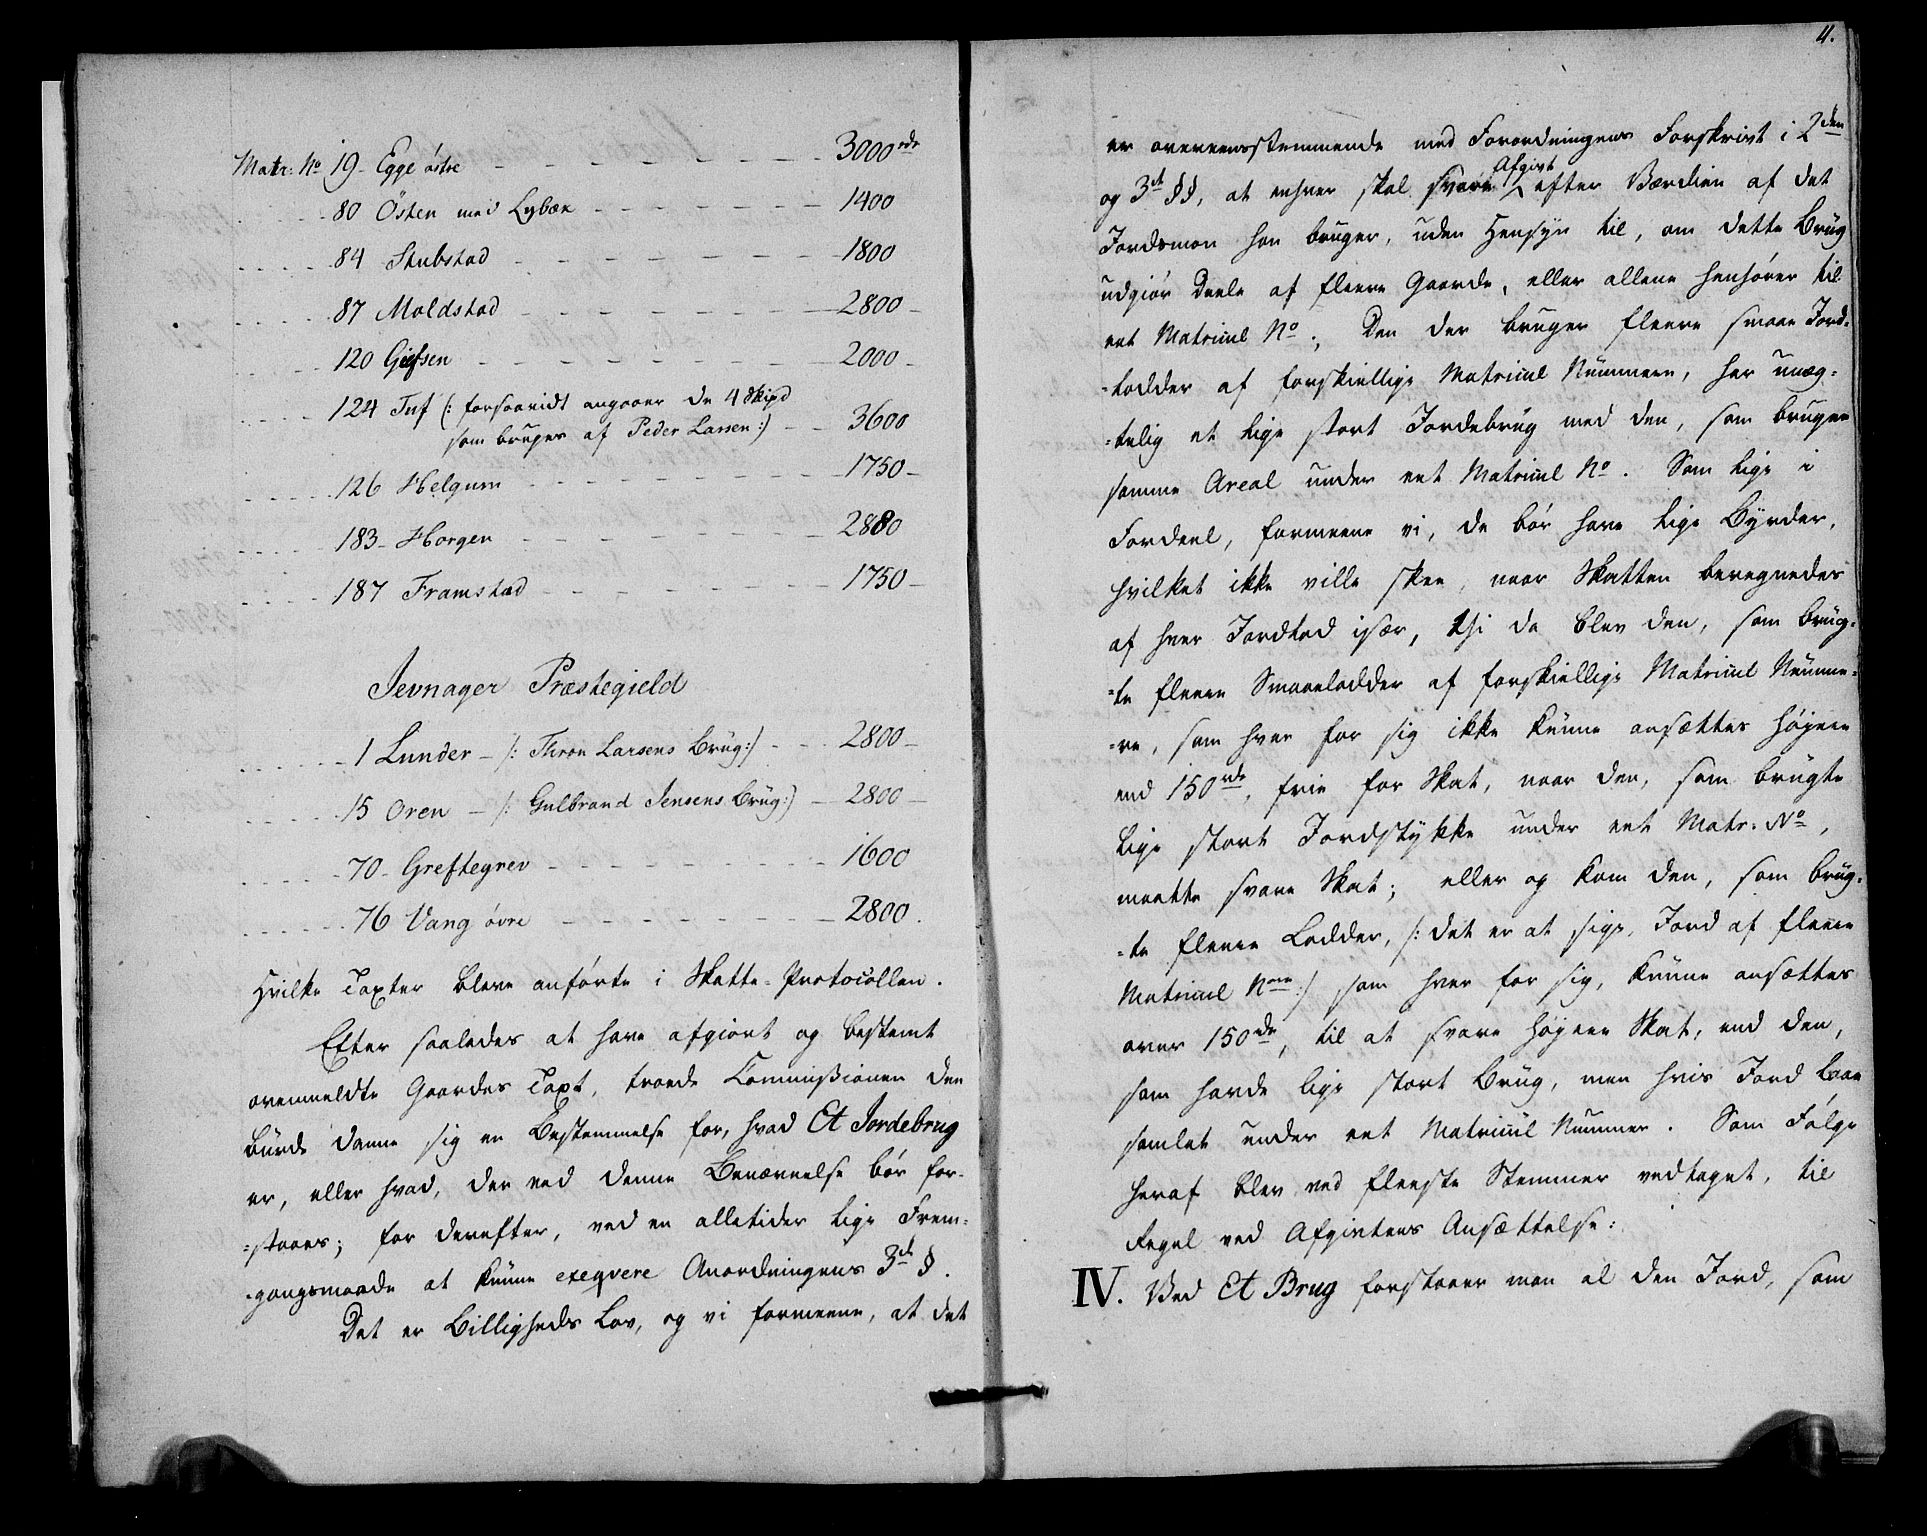 Matr: No 19 - Egge östre - - - - - - - 3000 rdr
- - - - 80 Östen med Lybæk - - - - - - 1400
- - - - 84 Stubstad - - - - - - - 1800
- - - - 87 Moldstad - - - - - - - 2800 -
- - - - 120 Giefsen - - - - - - - 2000 -
- - - - 124 Tuf (: forsaavidt angaaer de 4 Skipd
som bruges af Peder Larsen :) - - 3600
- - - - 126 Helgum - - - - - - - 1750 -
- - - - 183 - Horgen - - - - - - - 2880
- - - - 187 Framstad - - - - - - - 1750 -
Jevnager Præstegield
- - - - - 1 Lunder - /: Thron Larsens Brug :/ - - 2800 -
- - - - - 15 Oren - /: Gulbrand Jensens Brug :/ - 2800 -
- - - - - 70 - Greftegrev - - - - - - 1600
- - - - - 76 Vang övre - - - - - - 2800.
Hvilke Taxter bleve anförte i Skatte-Protocollen.
Efter saaledes at have afgiort og bestemt
ovenmeldte Gaardes Taxt, troede Commissionen den
burde danne sig en Bestemmelse for, hvad Et Jordebrug
er, eller hvad, der ved denne Benævnelse bör for-
=staaes; for derefter, ved en alletider lige Frem=
-gangsmaade at kunne exeqvere Anordningens 3d §.
Det er Billigheds Lov, og vi formeene, at det
4.
er overeensstemmende med Forordningens Forskrivt i 2den
og 3d §§, at enhver skal svare Afgivt efter Værdien af det
Jordsmon han bruger, uden Hensyn til, om dette Brug
udgiör Deele af fleere Gaarde, eller allene henhörer til
eet Matricul No.; Den der bruger fleere smaae Jord-
-lodder af forskiellige Matricul Nummere, har unæg-
-telig et lige stort Jordebrug med den, som bruger
samme Areal under eet Matricul No. Som lige i
Fordeel, formeene vi, de bör have lige Byrder,
hvilket ikke ville skee, naar Skatten beregnedes
af hver Jordlod især, thi da blev den, som brug-
=te fleere Smaaelodder af forskiellige Matricul Numme-
=re, som hver for sig ikke kunne ansættes höyere
end 150 rdr, frie for Skat, naar den, som brugte
lige stort Jordstykke under eet Matr: No,
maatte svare Skat; eller og kom den, som brug-
-te fleere Lodder, /: det er at sige, Jord af fleere
Matricul Nore :/ som hver for sig, kunne ansættes
over 150 rdr, til at svare höyere Skat, end den,
som havde lige stort Brug, men hvis Jord laae
samlet under eet Matricul Nummer. Som Fölge
heraf blev ved fleeste Stemmer vedtaget, til
Regel ved Afgivtens Ansættelse:
IV. Ved Et Brug forstaaer man al den Jord, som